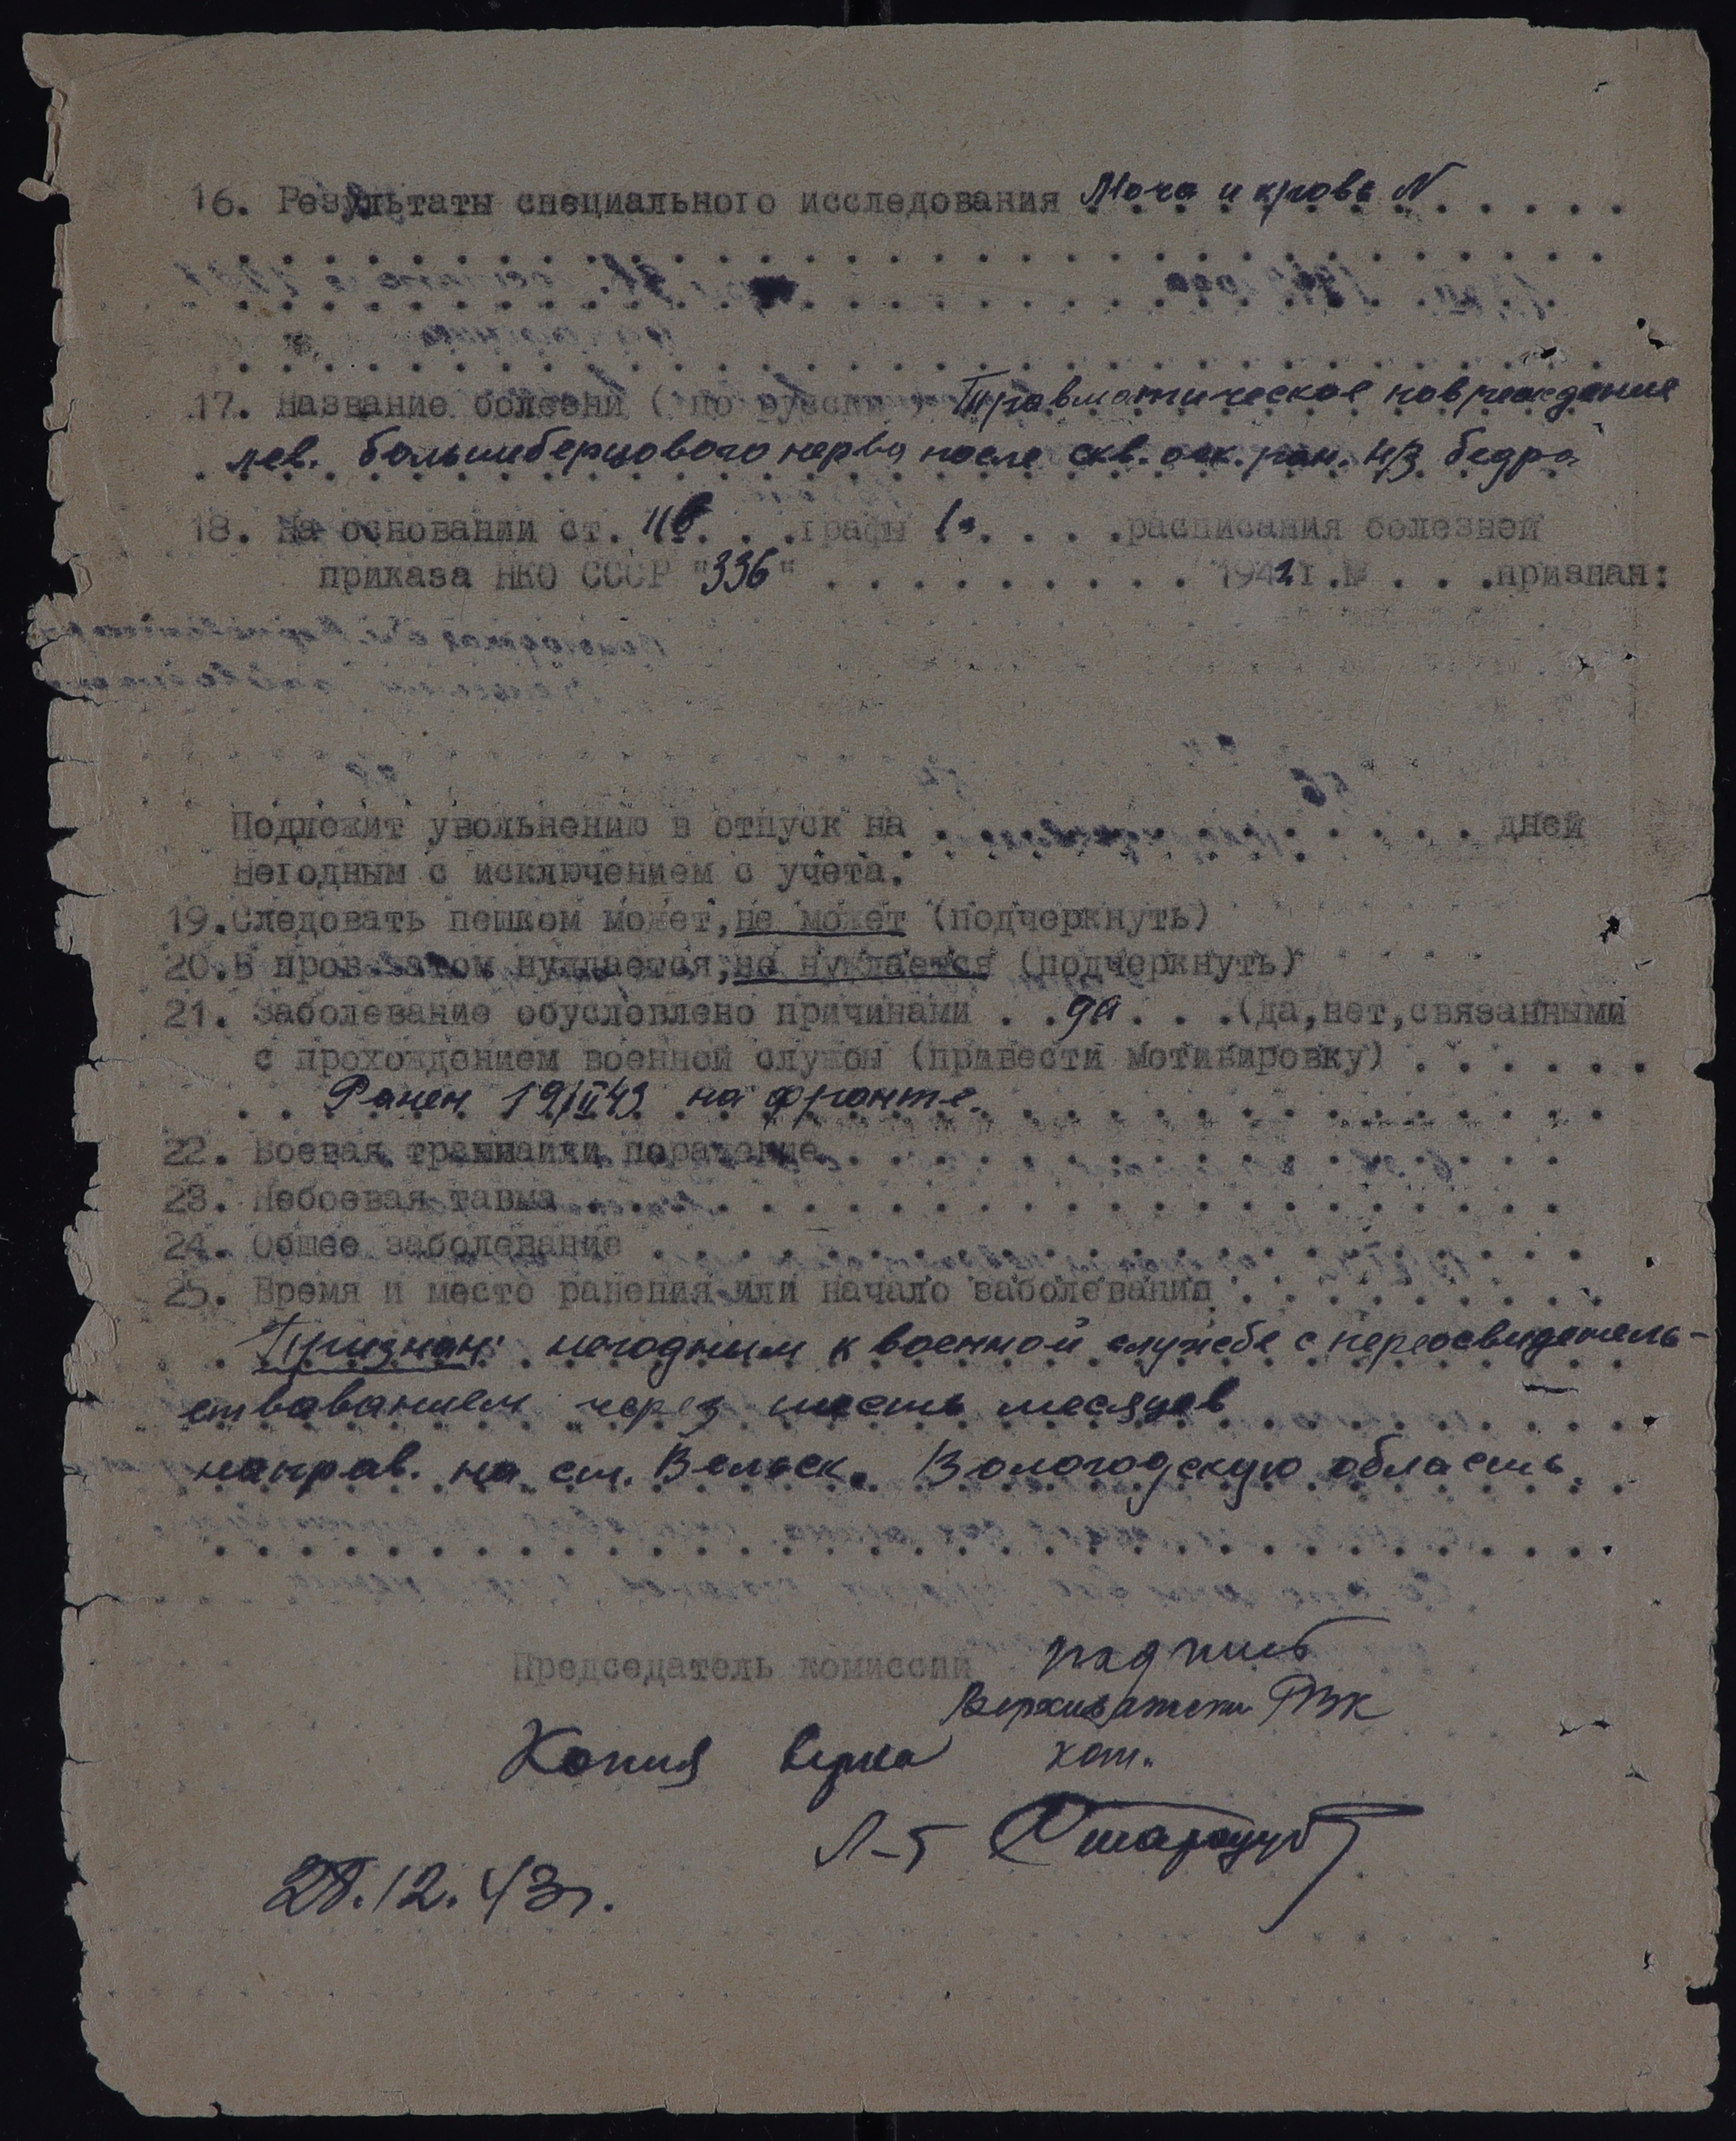 16. Результаты специального исследования Моча и кровь N
17. Название болезни (по русски) Травматическое повреждение
лев. большеберцового нерва после скв. оск. ран. н/з бедра
18. На основании ст. 11б. . .графы I. . . .расписания болезней
приказа НКО СССР "336" . . . . . . . . . . 1942г.№ . . .признан:
Подлежит увольнению в отпуск на . . . . . . . . . . . . дней
Негодным с исключением с учета.
19.Следовать пешком может,не может (подчеркнуть)
20.В пров.затом нуждается,не нуждается (подчеркнуть)
21. Заболевание обусловлено причинами . .да. . .(да,нет,связанными
с прохождением военной службы (привести мотивировку) . . . . . .
Ранен 19/II 43 на фронте.
22. Боевая поражение
23. Небоевая тавма
24. Общее заболевание
25. Время и место ранения или начало заболевания
Признан: негодным к военной службе с переосвидетель-
ствованием через шесть месяцев
направ. на ст. Вельск. Вологодскую область.
Председатель комиссии подпись
РВК
Копия верна
Л-т
28.12.43г.